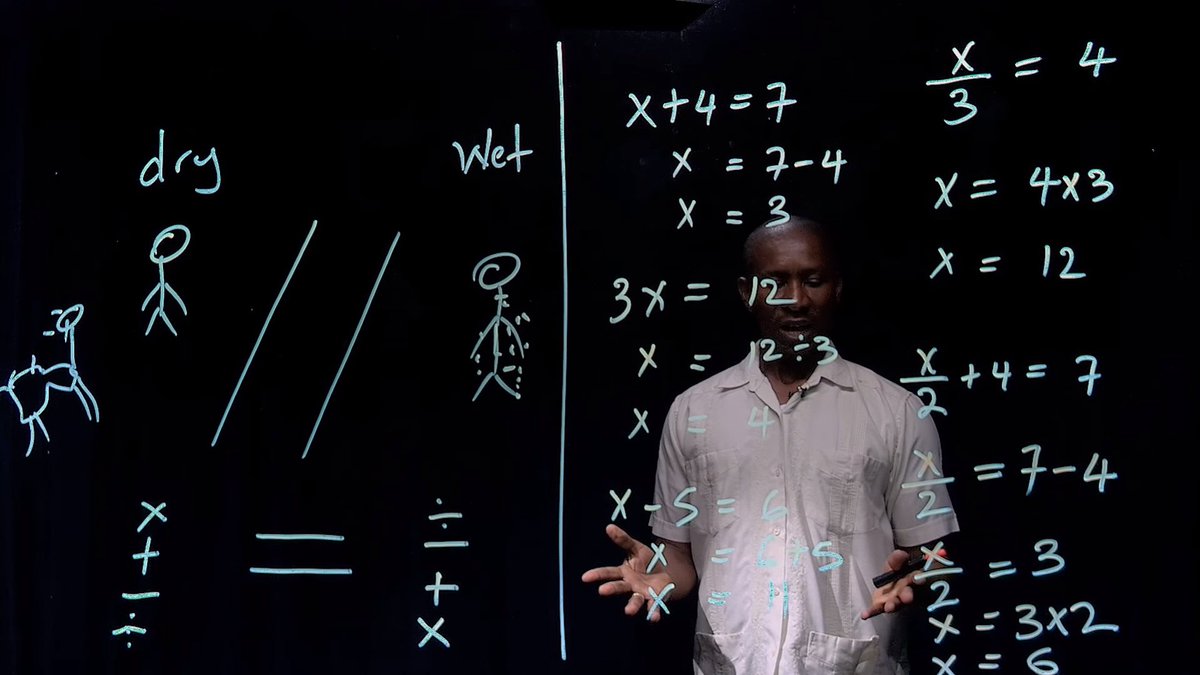 dry
Wet
×
+
−
÷
=
÷
−
+
×
x+4=7
x = 7-4
x = 3
3x = 12
x = 12÷3
x = 4
x-5 = 6
x = 6+5
x = 11
x/3 = 4
x = 4x3
x = 12
x/2 +4 = 7
x/2 = 7-4
x/2 = 3
x = 3x2
x = 6